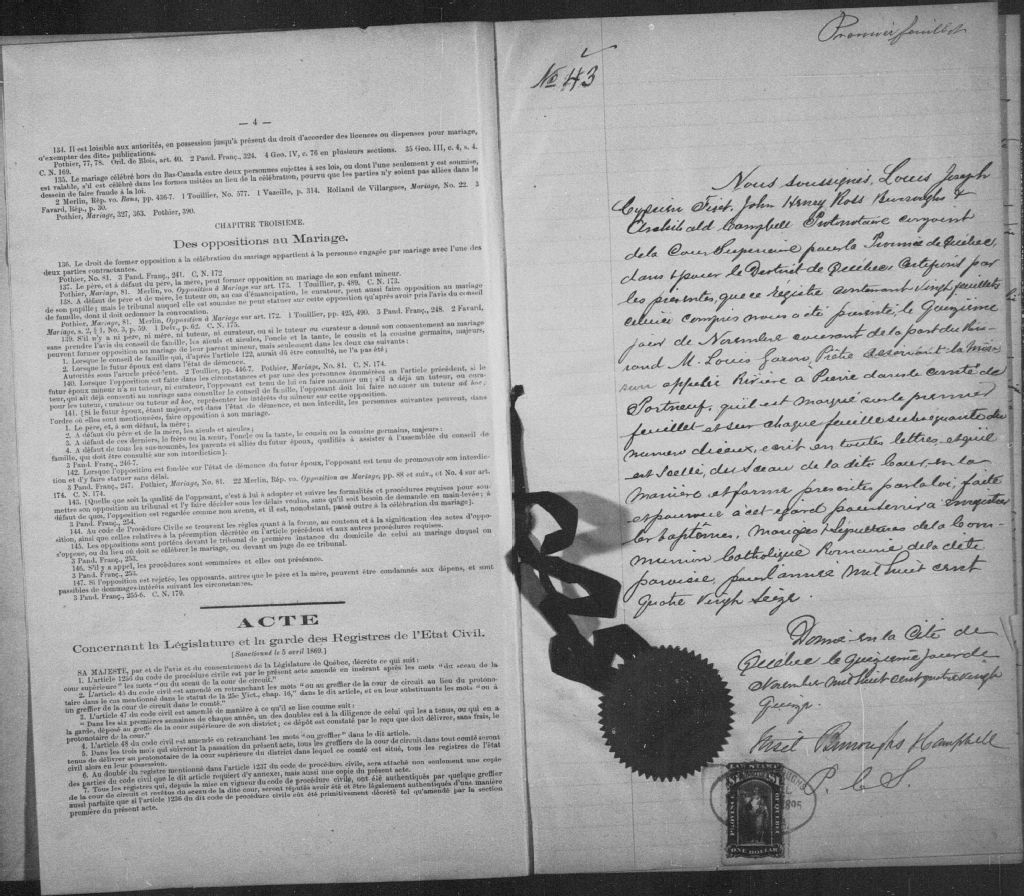 — 4 —
134. Il est loisible aux autorités, en possession jusqu'à présent du droit d'accorder des licences ou dispenses pour mariage,
d'exempter des dites publications.
Pothier, 77, 78. Ord. de Blois, art. 40. 2 Pand. Franç., 324. 4 Geo. IV, c. 76 en plusieurs sections. 35 Geo. III, c. 4, s. 4.
C. N. 169.
135. Le mariage célébré hors du Bas-Canada entre deux personnes sujettes à ses lois, ou dont l'une seulement y est soumise,
est valable, s'il est célébré dans les formes usitées au lieu de la célébration, pourvu que les parties n'y soient pas allées dans le
dessein de faire fraude à la loi.
2 Merlin, Rép. vo. Bans, pp. 436-7. 1 Toullier, No. 577. 1 Vazeille, p. 314. Rolland de Villargues, Mariage, No. 22. 3
Favard, Rép., p. 30.
Pothier, Mariage, 327, 363. Pothier, 390.
CHAPITRE TROISIÈME.
Des oppositions au Mariage.
136. Le droit de former opposition à la célébration du mariage appartient à la personne engagée par mariage avec l'une des
deux parties contractantes.
Pothier, No. 81. 3 Pand. Franç., 241. C. N. 172
137. Le père, et à défaut du père, la mère, peut former opposition au mariage de son enfant mineur.
Pothier, Mariage, 81. Merlin, vo. Opposition à Mariage sur art. 173. 1 Toullier, p. 489. C. N. 173.
138. A défaut de père et de mère, le tuteur ou, au cas d'émancipation, le curateur, peut aussi faire opposition au mariage
de son pupille; mais le tribunal auquel elle est soumise ne peut statuer sur cette opposition qu'après avoir pris l'avis du conseil
de famille, dont il doit ordonner la convocation.
Pothier, Mariage, 81. Merlin, Opposition à Mariage sur art. 172. 1 Toullier, pp. 425, 490. 3 Pand. Franç., 248. 2 Favard,
Mariage, s. 2, § 1. No. 3, p. 59. 1 Delv., p. 62. C. N. 175.
139. S'il n'y a ni père, ni mère, ni tuteur, ni curateur, ou si le tuteur ou curateur a donné son consentement au mariage
sans prendre l'avis du conseil de famille, les aïeuls et aïeules, l'oncle et la tante, le cousin et la cousine germains, majeurs,
peuvent former opposition au mariage de leur parent mineur, mais seulement dans les deux cas suivants:
1. Lorsque le conseil de famille qui, d'après l'article 122, aurait dû être consulté, ne l'a pas été;
2. Lorsque le futur époux est dans l'état de démence.
Autorités sous l'article précédent. 2 Toullier, pp. 446-7. Pothier, Mariage, No. 81. C. N. 174.
140. Lorsque l'opposition est faite dans les circonstances et par une des personnes énumérées en l'article précédent, si le
futur époux mineur n'a ni tuteur, ni curateur, l'opposant est tenu de lui en faire nommer un; s'il a déjà un tuteur, ou curateur,
qui ait déjà consenti au mariage sans consulter le conseil de famille, l'opposant doit lui faire nommer un tuteur ad hoc,
pour les tuteur, curateur ou tuteur ad hoc, représenter les intérêts du mineur sur cette opposition.
141. [Si le futur époux, étant majeur, est dans l'état de démence, et non interdit, les personnes suivantes peuvent, dans
l'ordre où elles sont mentionnées, faire opposition à son mariage.
1. Le père, et, à son défaut, la mère;
2. A défaut du père et de la mère, les aïeuls et aïeules;
3. A défaut de ces derniers, le frère ou la sœur, l'oncle ou la tante, le cousin ou la cousine germains, majeurs:
4. A défaut de tous les sus-nommés, les parents et alliés du futur époux, qualifiés à assister à l'assemblée du conseil de
famille, qui doit être consulté sur son interdiction].
3 Pand. Franç., 246-7.
142. Lorsque l'opposition est fondée sur l'état de démence du futur époux, l'opposant est tenu de promouvoir son interdiction
et d'y faire statuer sans délai.
3 Pand. Franç., 247. Pothier, Mariage, No. 81. 22 Merlin, Rép. vo. Opposition au Mariage, pp. 88 et suiv., et No. 4 sur art.
174. C. N. 174.
143. [Quelle que soit la qualité de l'opposant, c'est à lui à adopter et suivre les formalités et procédures requises pour soumettre
son opposition au tribunal et l'y faire décider sous les délais voulus, sans qu'il soit besoin de demande en main-levée; à
défaut de quoi, l'opposition est regardée comme non avenu, et il est, nonobstant, passé outre à la célébration du mariage].
3 Pand. Franç., 254.
144. Au code de Procédure Civile se trouvent les règles quant à la forme, au contenu et à la signification des actes d'opposition,
ainsi que celles relatives à la péremption décrétée en l'article précédent et aux autres procédures requises.
145. Les oppositions sont portées devant le tribunal de première instance du domicile de celui au mariage duquel on
s'oppose, ou du lieu où doit se célébrer le mariage, ou devant un juge de ce tribunal.
3 Pand. Franç., 253.
146. S'il y a appel, les procédures sont sommaires et elles ont préséance.
3 Pand. Franç., 255.
147. Si l'opposition est rejetée, les opposants, autres que le père et la mère, peuvent être condamnés aux dépens, et sont
passibles de dommages-intérêts suivant les circonstances.
3 Pand. Franç., 255-6. C. N. 179.
ACTE
Concernant la Législature et la garde des Registres de l'Etat Civil.
[Sanctionné le 5 avril 1869.]
SA MAJESTE, par et de l'avis et du consentement de la Législature de Québec, décrète ce qui suit:
1. L'article 1236 du code de procédure civile est par le présent acte amendé en insérant après les mots "du sceau de la
cour supérieure" les mots "ou du sceau de la cour de circuit."
2. L'article 45 du code civil est amendé en retranchant les mots "ou au greffier de la cour de circuit au lieu du protonotaire
dans le cas mentionné dans le statut de la 25e Vict., chap. 16," dans le dit article, et en leur substituant les mots "ou à
un greffier de la cour de circuit dans le comté."
3. L'article 47 du code civil est amendé de manière à ce qu'il se lise comme suit:
"Dans les six premières semaines de chaque année, un des doubles est à la diligence de celui qui les a tenus, ou qui en a
la garde, déposé au greffe de la cour supérieure de son district; ce dépôt est constaté par le reçu que doit délivrer, sans frais, le
protonotaire de la cour."
4. L'article 48 du code civil est amendé en retranchant les mots "ou greffier" dans le dit article.
5. Dans les trois mois qui suivront la passation du présent acte, tous les greffiers de la cour de circuit dans tout comté seront
tenus de délivrer au protonotaire de la cour supérieure du district dans lequel ce comté est situé, tous les registres de l'état
civil alors en leur possession.
6. Au double du registre mentionné dans l'article 1237 du code de procédure civile, sera attaché non seulement une copie
des parties du code civil que le dit article requiert d'y annexer, mais aussi une copie du présent acte.
7. Tous les registres qui, depuis la mise en vigueur du code de procédure civile, ont été authentiqués par quelque greffier
de la cour de circuit et revêtus du sceau de la dite cour, seront réputés avoir été et être légalement authentiqués d'une manière
aussi parfaite que si l'article 1236 du dit code de procédure civile eût été primitivement décrété tel qu'amendé par la section
première du présent acte.
Premier feuillet
No 43
Nous soussignés, Louis Joseph
Cyprien Fiset, John Henry Ross Burroughs &
Archibald Campbell Protonotaire conjoint
de la Cour Supérieure pour la Province de Québec,
dans & pour le District de Québec, Certifions par
les présentes, que ce régistre contenant vingt feuillets
celui-ci compris nous a été présenté, le Quinzième
jour de Novembre courant de la part du Révérend
M. Louis Prêtre desservant la mission
appelée Rivière à Pierre dans le comté de
Portneuf, qu'il est marqué sur le premier
feuillet et sur chaque feuille subséquente du
numéro d'iceux, écrit en toutes lettres, et qu'il
est scellé, du Sceau de la dite Cour, en la
manière et forme prescrites par la loi, faite
et pourvue à cet égard pour servir à enregistrer
les baptêmes, mariages & sépultures de la Communion
Catholique Romaine de la dite
paroisse, pour l'année mil huit cent
quatre vingt Seize.
Donné en la Cité de
Québec le Quinzième jour de
Novembre mil huit cent quatre vingt
Quinze.
Fiset Burroughs & Campbell
P. C. S.
LAW STAMP
PROVINCE
QUEBEC
ONE DOLLAR
1895